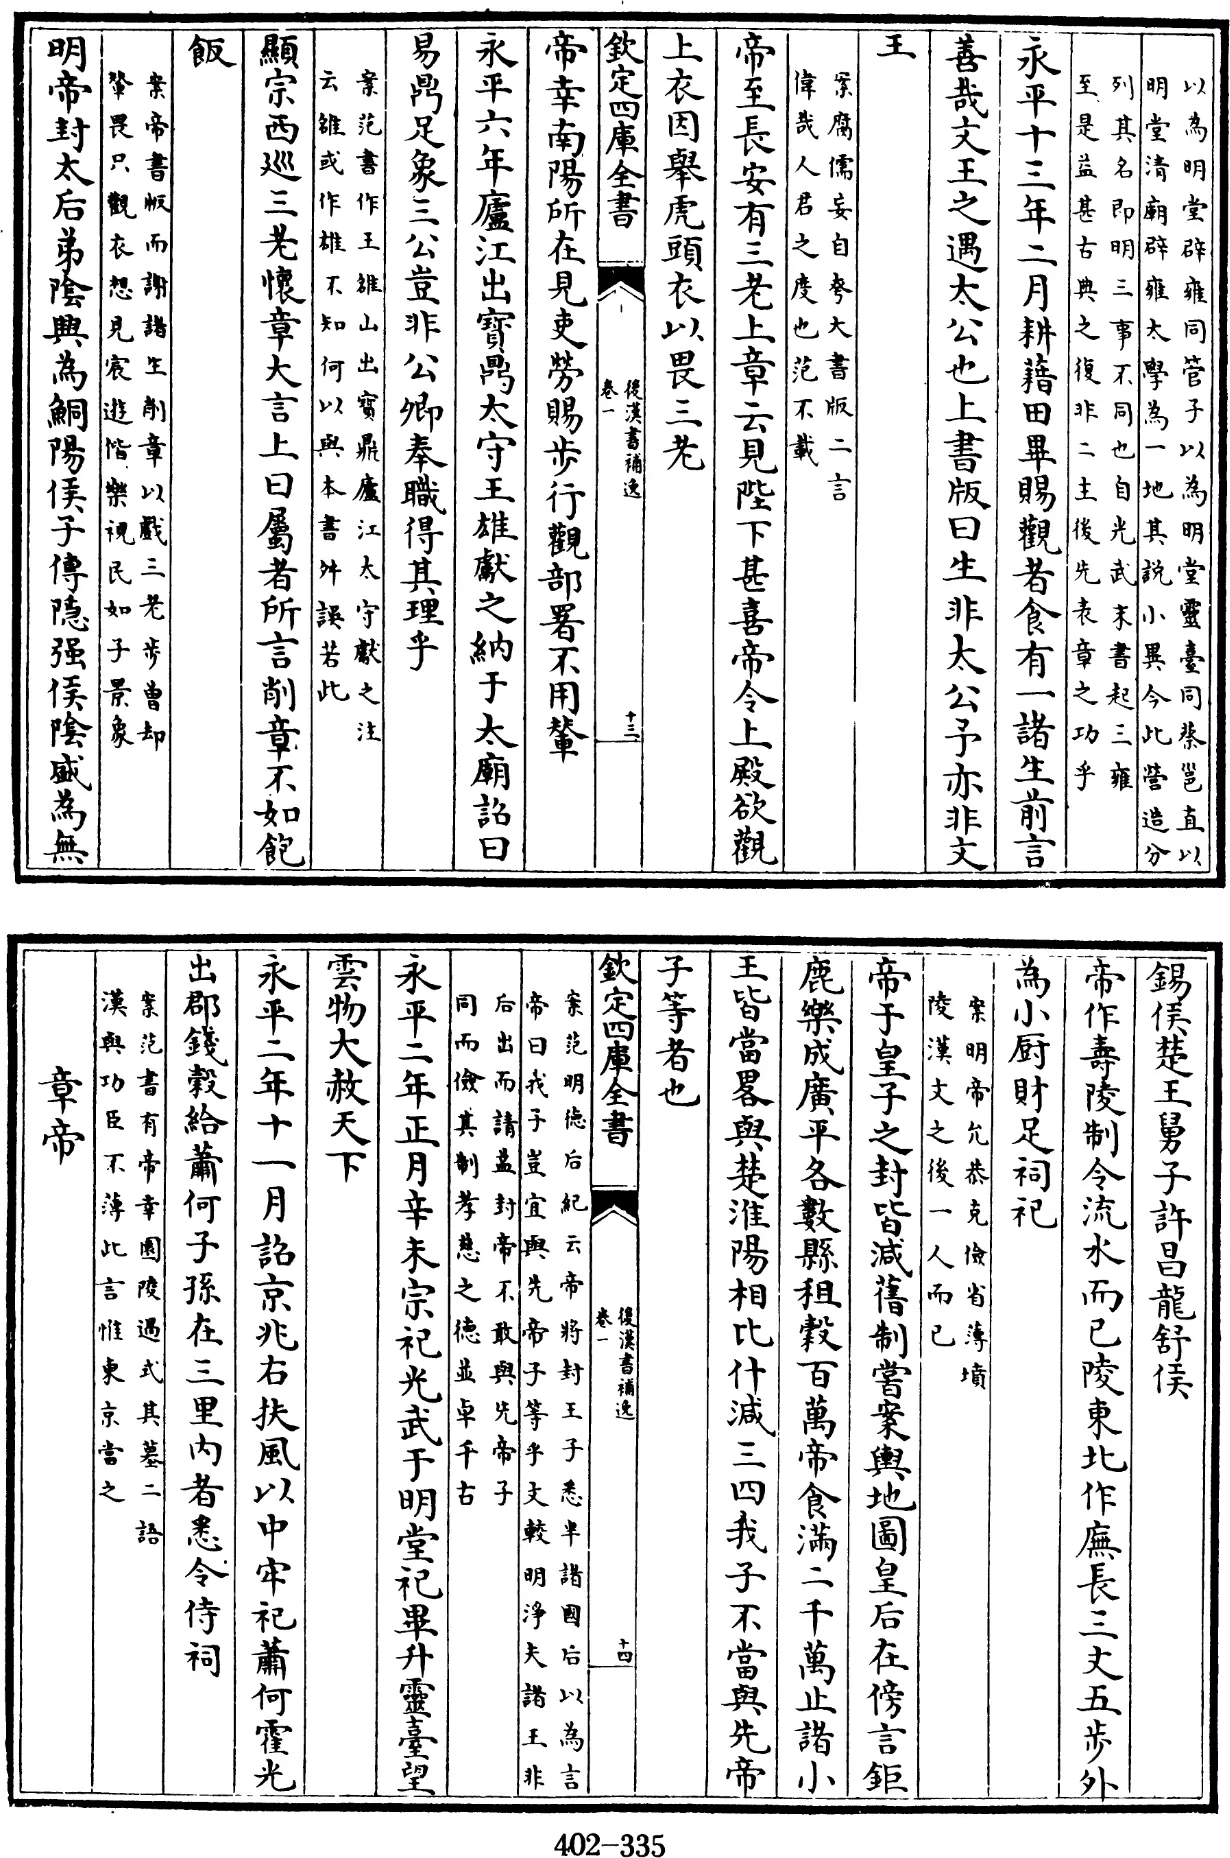 以為明堂辟雍同管子以為明堂靈臺司蔡邕直以
明堂清廟辟雍太學為一地其説小異今此營造分
列其名即明三事不同也自光武末書起三雍
至是益甚古典之復非二主後先表章之功乎
永平十三年二月耕藉田畢賜觀者食有一諸生前言
善哉文王之遇太公也上書版曰生非太公予亦非文
王
案腐儒妄自夸大書版二言
偉哉人君之度也范不載
帝至長安有三老上章云見陛下甚喜帝令上殿欲觀
上衣因舉虎頭衣以畏三老
欽定四庫全書
後漢書補逸
卷一
十三
帝幸南陽所在見吏勞賜步行觀部署不用輦
永平六年廬江出寶鼎太守王雄獻之納于太廟詔曰
易鼎足象三公豈非公卿奉職得其理乎
案范書作王雒山出寶鼎廬江太守獻之注
云雒或作雄不知何以與本書舛誤若此
顯宗西巡三老懷章大言上曰屬者所言削章不如飽
飯
案帝書版而謝諸生削章以戲三老步曾却
輦畏只觀衣想見宸遊偕樂視民如子景象
明帝封太后弟陰興為鮦陽侯子傳隐强侯陰盛為無
錫侯楚王舅子許昌龍舒侯
帝作壽陵制令流水而已陵東北作廡長三丈五步外
為小厨財足祠祀
案明帝允恭克儉省薄墳
陵漢文之後一人而已
帝于皇子之封皆減舊制嘗案輿地圖皇后在傍言鉅
鹿樂成廣平各數縣租穀百萬帝食滿二千萬止諸小
王皆當畧與楚淮陽相比什減三四我子不當與先帝
子等者也
欽定四庫全書
後漢書補逸
卷一
十四
案范明德后紀云帝將封王子悉半諸國后以為言
帝曰我子豈宜與先帝子等乎文較明淨夫諸王非
后出而請益封帝不敢與先帝子
同而儉其制孝慈之德並卓千古
永平二年正月辛未宗祀光武于明堂祀畢升靈臺望
雲物大赦天下
永平二年十一月詔京兆右扶風以中牢祀蕭何霍光
出郡錢穀給蕭何子孫在三里内者悉令侍祠
案范書有帝幸園陵過式其墓二語
漢與功臣不薄此言惟東京當之
章帝
402-335